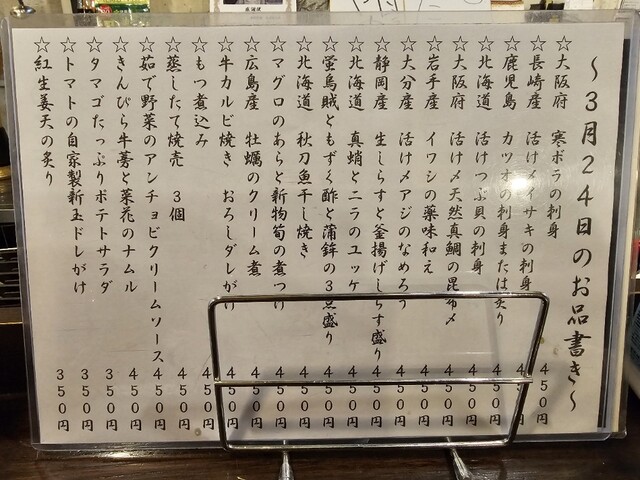 ～3月24日のお品書き～
☆大阪府 寒ボラの刺身 450円
☆長崎産 活け〆イサキの刺身 450円
☆鹿児島 カツオの刺身または炙り 450円
☆北海道 活けつぶ貝の刺身 450円
☆大阪府 活け〆天然真鯛の昆布〆 450円
☆岩手産 イワシの薬味和え 450円
☆大分産 活け〆アジのなめろう 450円
☆静岡産 生しらすと釜揚げしらす盛り 450円
☆北海道 真蛸とニラのユッケ 450円
☆蛍烏賊ともずく酢と蒲鉾の3点盛り 450円
☆北海道 秋刀魚干し焼き 450円
☆マグロのあらと新物筍の煮つけ 450円
☆広島産 牡蠣のクリーム煮 450円
☆牛カルビ焼き おろしダレがけ 450円
☆もつ煮込み 450円
☆蒸したて焼売 3個 450円
☆茹で野菜のアンチョビクリームソース 450円
☆きんぴら牛蒡と菜花のナムル 450円
☆タマゴたっぷりポテトサラダ 350円
☆トマトの自家製新玉ドレがけ 350円
☆紅生姜天の炙り 350円